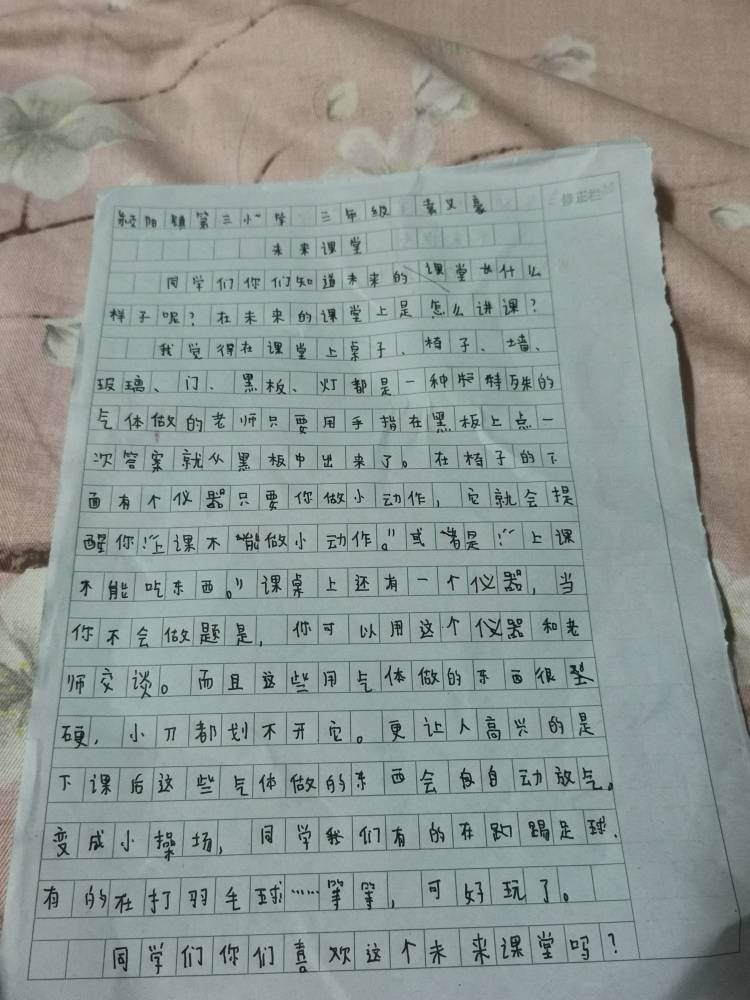 颍阳镇第三小学 三年级 袁义豪
修正栏
未来课堂
同学们你们知道未来的课堂是什么
样子呢?在未来的课堂上是怎么讲课?
我觉得在课堂上桌子、椅子、墙、
玻璃、门、黑板、灯都是一种特殊的
气体做的老师只要用手指在黑板上点一
次答案就从黑板中出来了。在椅子的下
面有个仪器只要你做小动作,它就会提
醒你:“上课不能做小动作。”或者是:“上课
不能吃东西。”课桌上还有一个仪器,当
你不会做题是,你可以用这个仪器和老
师交谈。而且这些用气体做的东西很坚
硬,小刀都划不开它。更让人高兴的是
下课后这些气体做的东西会自动放气。
变成小操场,同学我们有的在踢足球.
有的在打羽毛球……等等,可好玩了。
同学们你们喜欢这个未来课堂吗?